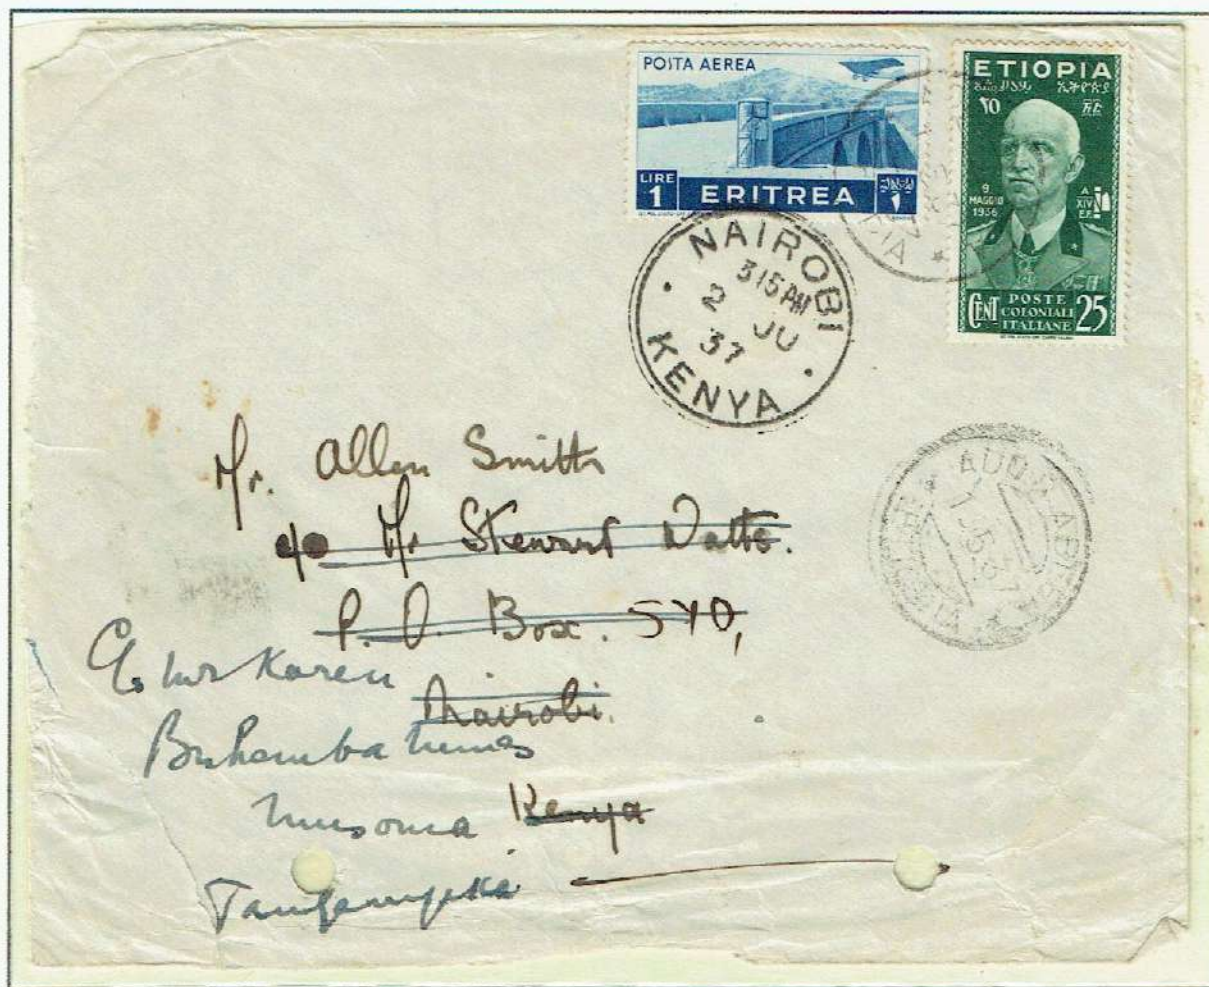 POSTA AEREA
LIRE
1
ERITREA
ETIOPIA
ኢትዮጵያ
٢٥
፳፭
9
MAGGIO
1936
A
XIV
E.F.
CENT
POSTE
COLONIALI
ITALIANE
25
NAIROBI
315 AM
2 JU
37
KENYA
ADDIS ABEBA
5.37
Mr. Allen Smith
c/o Mr Stewart Watts.
P. O. Box. 590,
Nairobi.
Kenya
C/o Mr Karen
Buhemba Mines
Musoma
Tanganyika